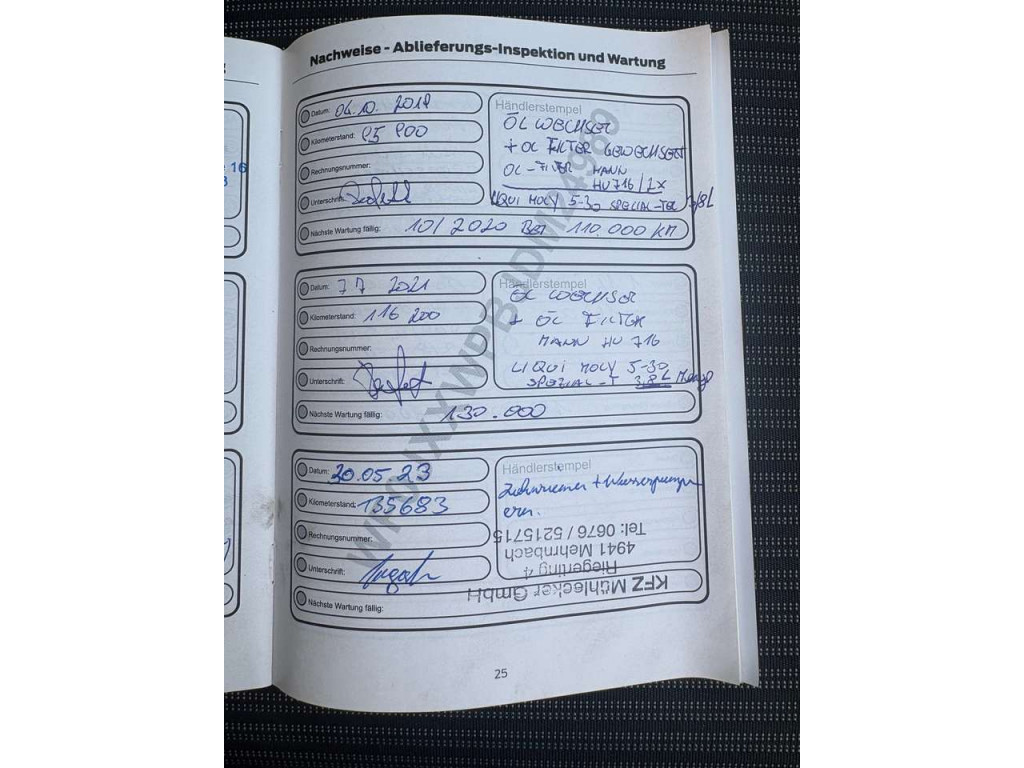 Nachweise - Ablieferungs-Inspektion und Wartung
Datum: 04.10. 2019
Kilometerstand: 95 900
Rechnungsnummer:
Unterschrift:
Nächste Wartung fällig: 10/2020 BEI 110.000 KM
Händlerstempel
ÖL WECHSEL
+ OL FILTER GEWECHSELT
OL-FILTER MANN
HU 716/2X
LIQUI MOLY 5-30 SPEZIAL-TEC 3,8L
Datum: 7 7 2021
Kilometerstand: 116 200
Rechnungsnummer:
Unterschrift:
Nächste Wartung fällig: 130.000
Händlerstempel
ÖL WECHSEL
+ ÖL FILTER
MANN HU 716
LIQUI MOLY 5-30
SPEZIAL-T 3,8L Menge
Datum: 20.05.23
Kilometerstand: 135683
Rechnungsnummer:
Unterschrift:
Nächste Wartung fällig:
Händlerstempel
Zahnriemen + Wasserpumpe
ern.
KFZ Mühlecker GmbH
Riegerting 4
4941 Mehrnbach
Tel: 0676 / 5215715
25
16